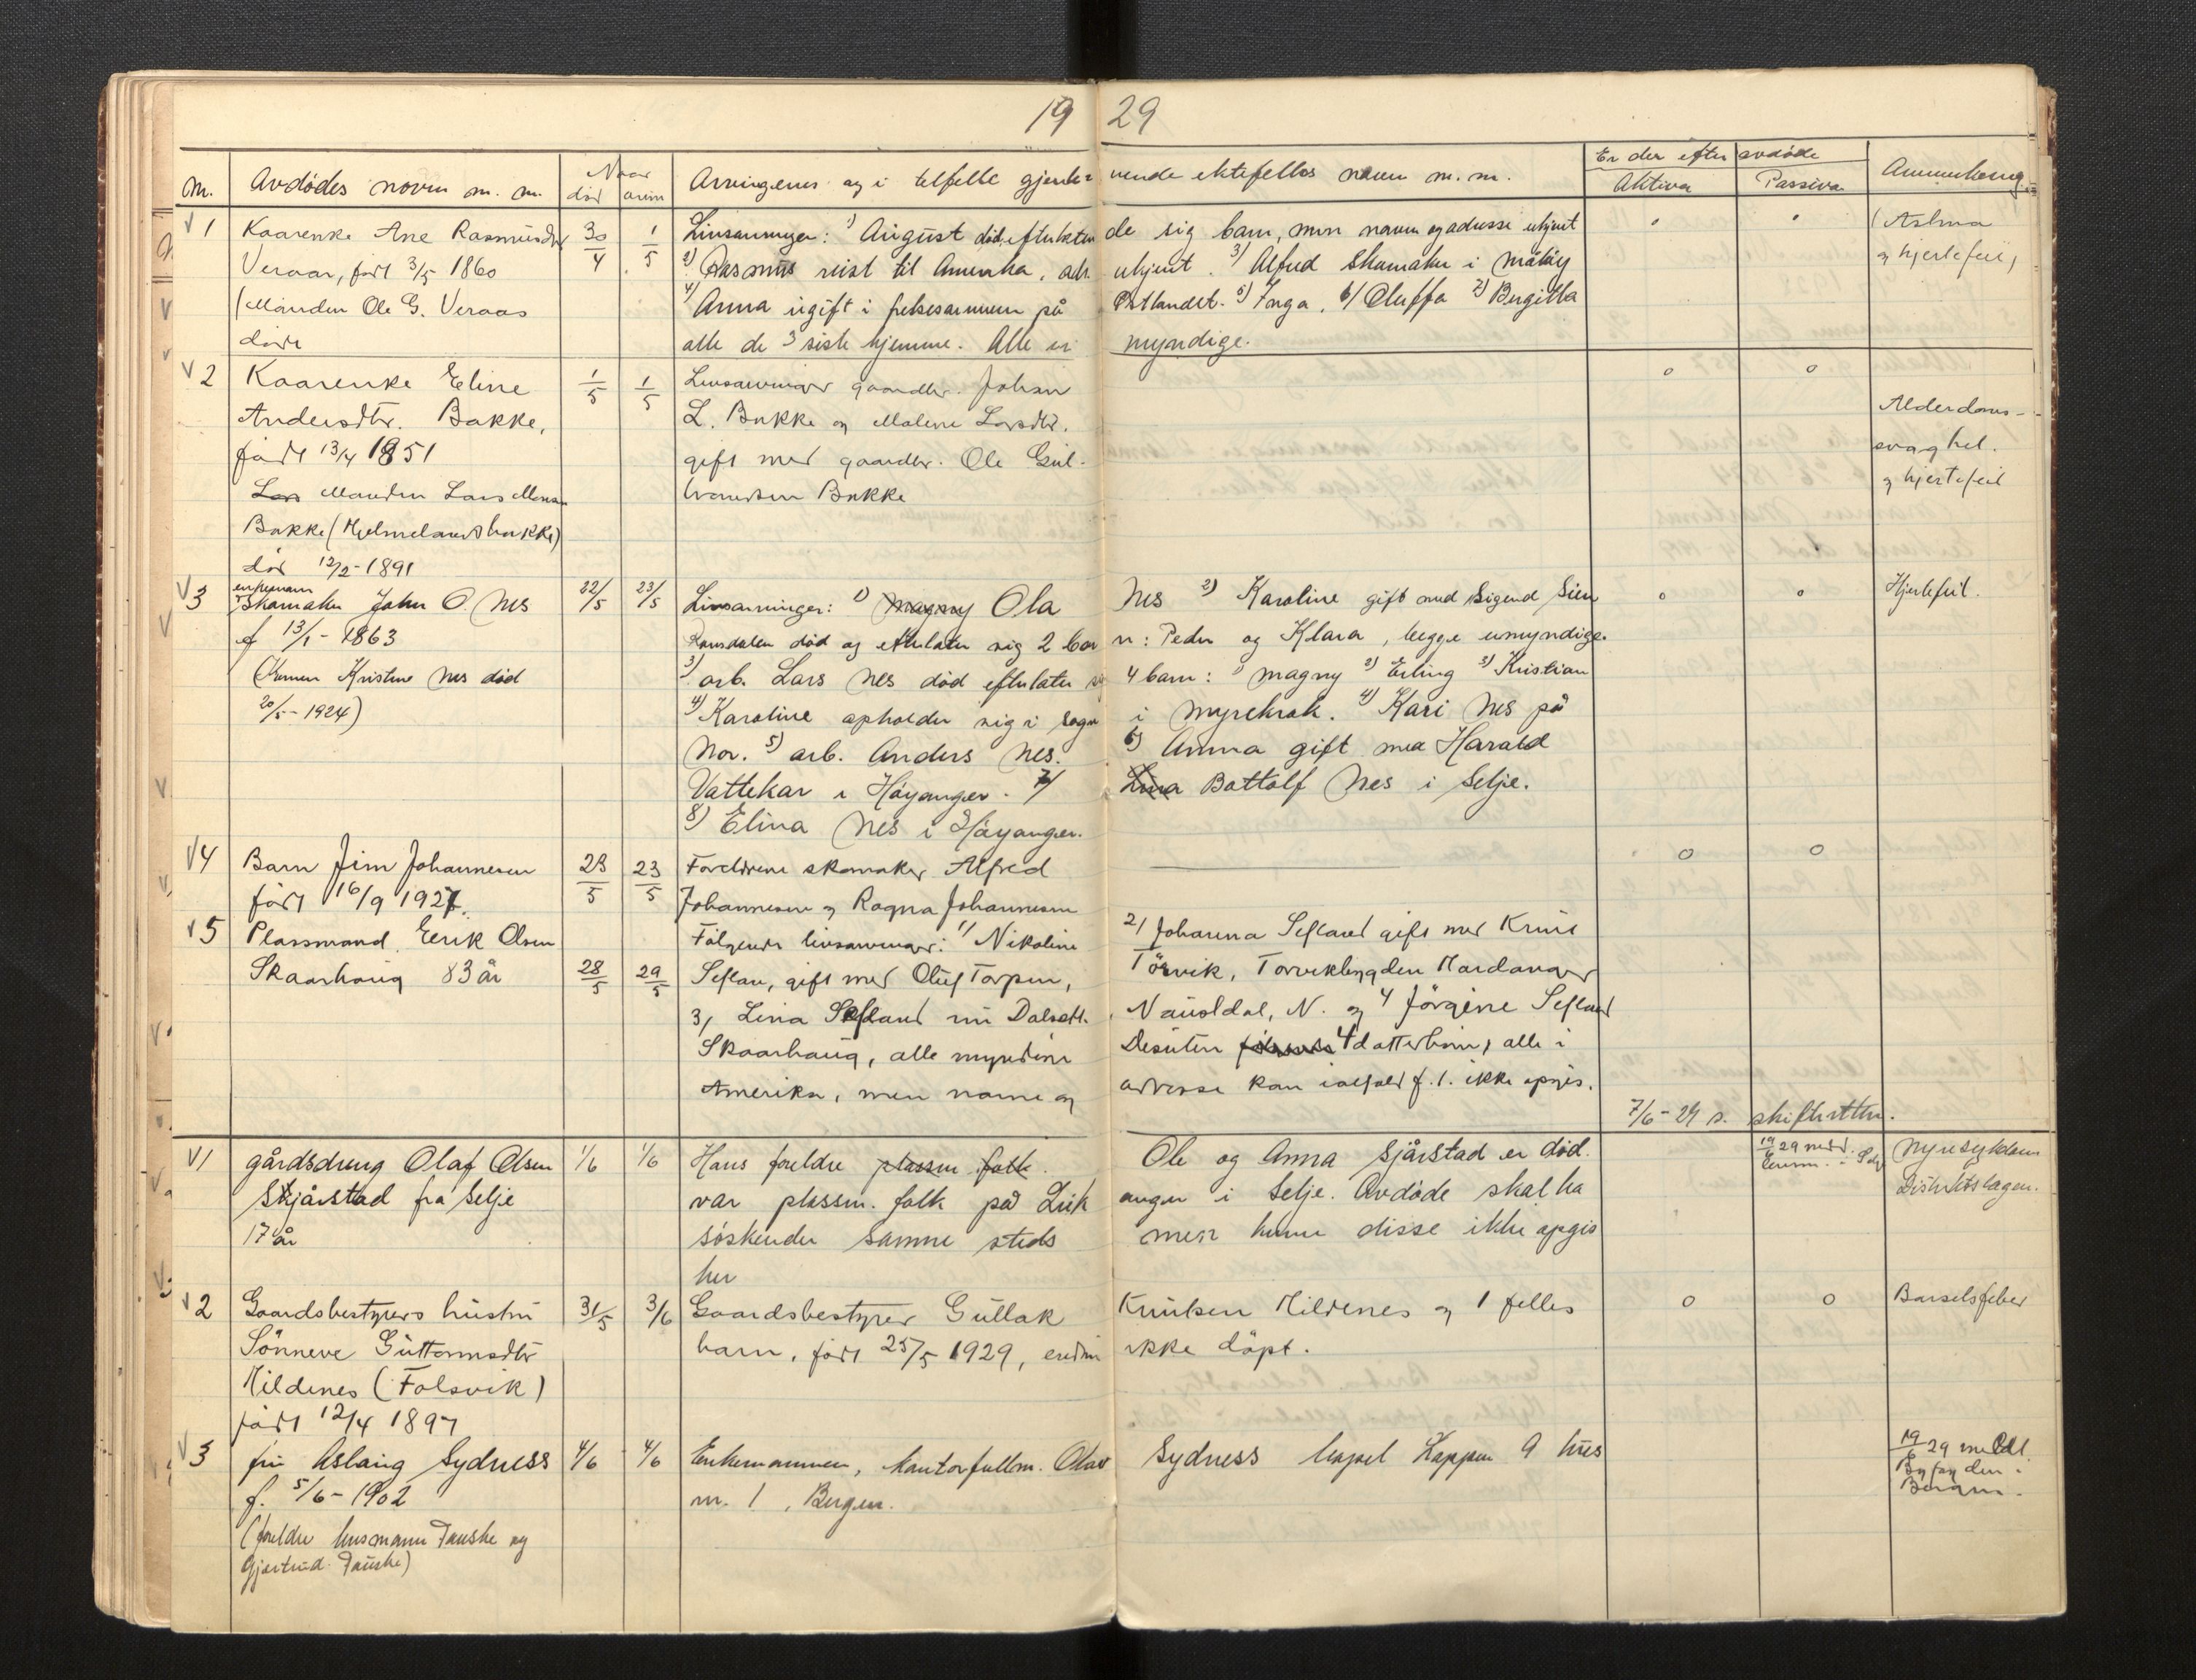 19 29
M. Avdødes navn m. m. Naar død anm Arvingenes og i tilfelle gjenlevende ektefelles navn m. m. Er der efter avdøde Aktiva Passiva Anmerkning
1 Kaarenke Ane Rasmusdtr 30/4 1/5 Livsarvinger: 1) August død, efterlatende sig barn, men navn og adresse ukjent (Astma
Veraas, født 3/5 1860 2) Rasmus reist til Amerika, adr. ukjent. 3) Alfred Skomaker i Måløy og hjertefeil)
(Manden Ole G. Veraas 4) Anna ugift i frelsesarmeen på Østlandet. 5) Inga, 6) Oluffa 7) Birgitta
døde alle de 3 siste hjemme. Alle er myndige.
2 Kaarenke Eline 1/5 1/5 Livsarvinger gaardbr. Johan o o
Andersdtr. Bakke, L. Bakke og Malene Larsdtr. Alderdoms-
født 13/4 1851 gift med gaardbr. Ole Gul- svaghet.
Manden Lars Monsen brandsen Bakke og hjertefeil
Bakke (Hjelmelandsbakke)
død 12/2-1891
3 enkemann
Skomaker John O. Nes 22/5 23/5 Livsarvinger: 1) Magny Ola Nes 2) Karoline gift med Sigurd Sien o o Hjertefeil.
f 13/1-1863 Romsdalen død og efterlater sig 2 barn: Peder og Klara, begge umyndige.
(Konen Kristine Nes død 3) arb. Lars Nes død efterlater sig 4 barn: 1) Magny 2) Erling 3) Kristian
20/5-1924) 4) Karoline opholder sig i Sogn i Myrekrok. 4) Kari Nes på
Nor. 5) arb. Anders Nes. 6) Anna gift med Harald
Vattekar i Høyanger. 7) Lina Bottolf Nes i Selje.
8) Elina Nes i Høyanger.
4 Barn Jim Johannesen 23/5 23/5 Foreldrene skomaker Alfred o o
født 16/9 1927. Johannesen og Ragna Johannesen
5 Plassmand Eerik Olsen Følgende livsarvinger: 1) Nikoline 2) Johanna Sefland gift med Knut
Skaarhaug 83 år 28/5 29/5 Seflan, gift med Oluf Torpen, Tørvik, Torvikbygden Hardanger
3) Lina Sefland nu Dalsett. Naustdal, N. og 4 Jørgine Sefland
Skaarhaug, alle myndine Desuten 4 datterbarn, alle i
Amerika, men navne og adresse kan ialfald f. t. ikke opgis.
7/6-29 s. skifteretten.
1 gårdsdreng Olaf Olsen 1/6 1/6 Hans foreldre plassm. folk. Ole og Anna Sjårstad er død. 19/6 29 medd. Nyresykdom
Skjårstad fra Selje var plassm. folk på Leikanger i Selje. Avdøde skal ha Distriktslægen.
17 år søskender samme steds men kunne disse ikke opgis
her
2 Gaardsbestyrers hustru 31/5 3/6 Gaardsbestyrer Gullak Knutsen Hildenes og 1 felles o o Barselsfeber
Sønneve Guttormsdtr barn, født 25/5 1929, endnu ikke døpt.
Hildenes (Folsvik)
født 12/4 1897
3 fru Aslaug Sydness 4/6 4/6 Enkemannen, kontorfullm. Olav Sydness hus 19/6 29 meddl.
f. 5/6-1902 nr. 1, Bergen. Byfogden i
(foreldre husmann Tauske og Bergen.
Gjertrud Tauske)